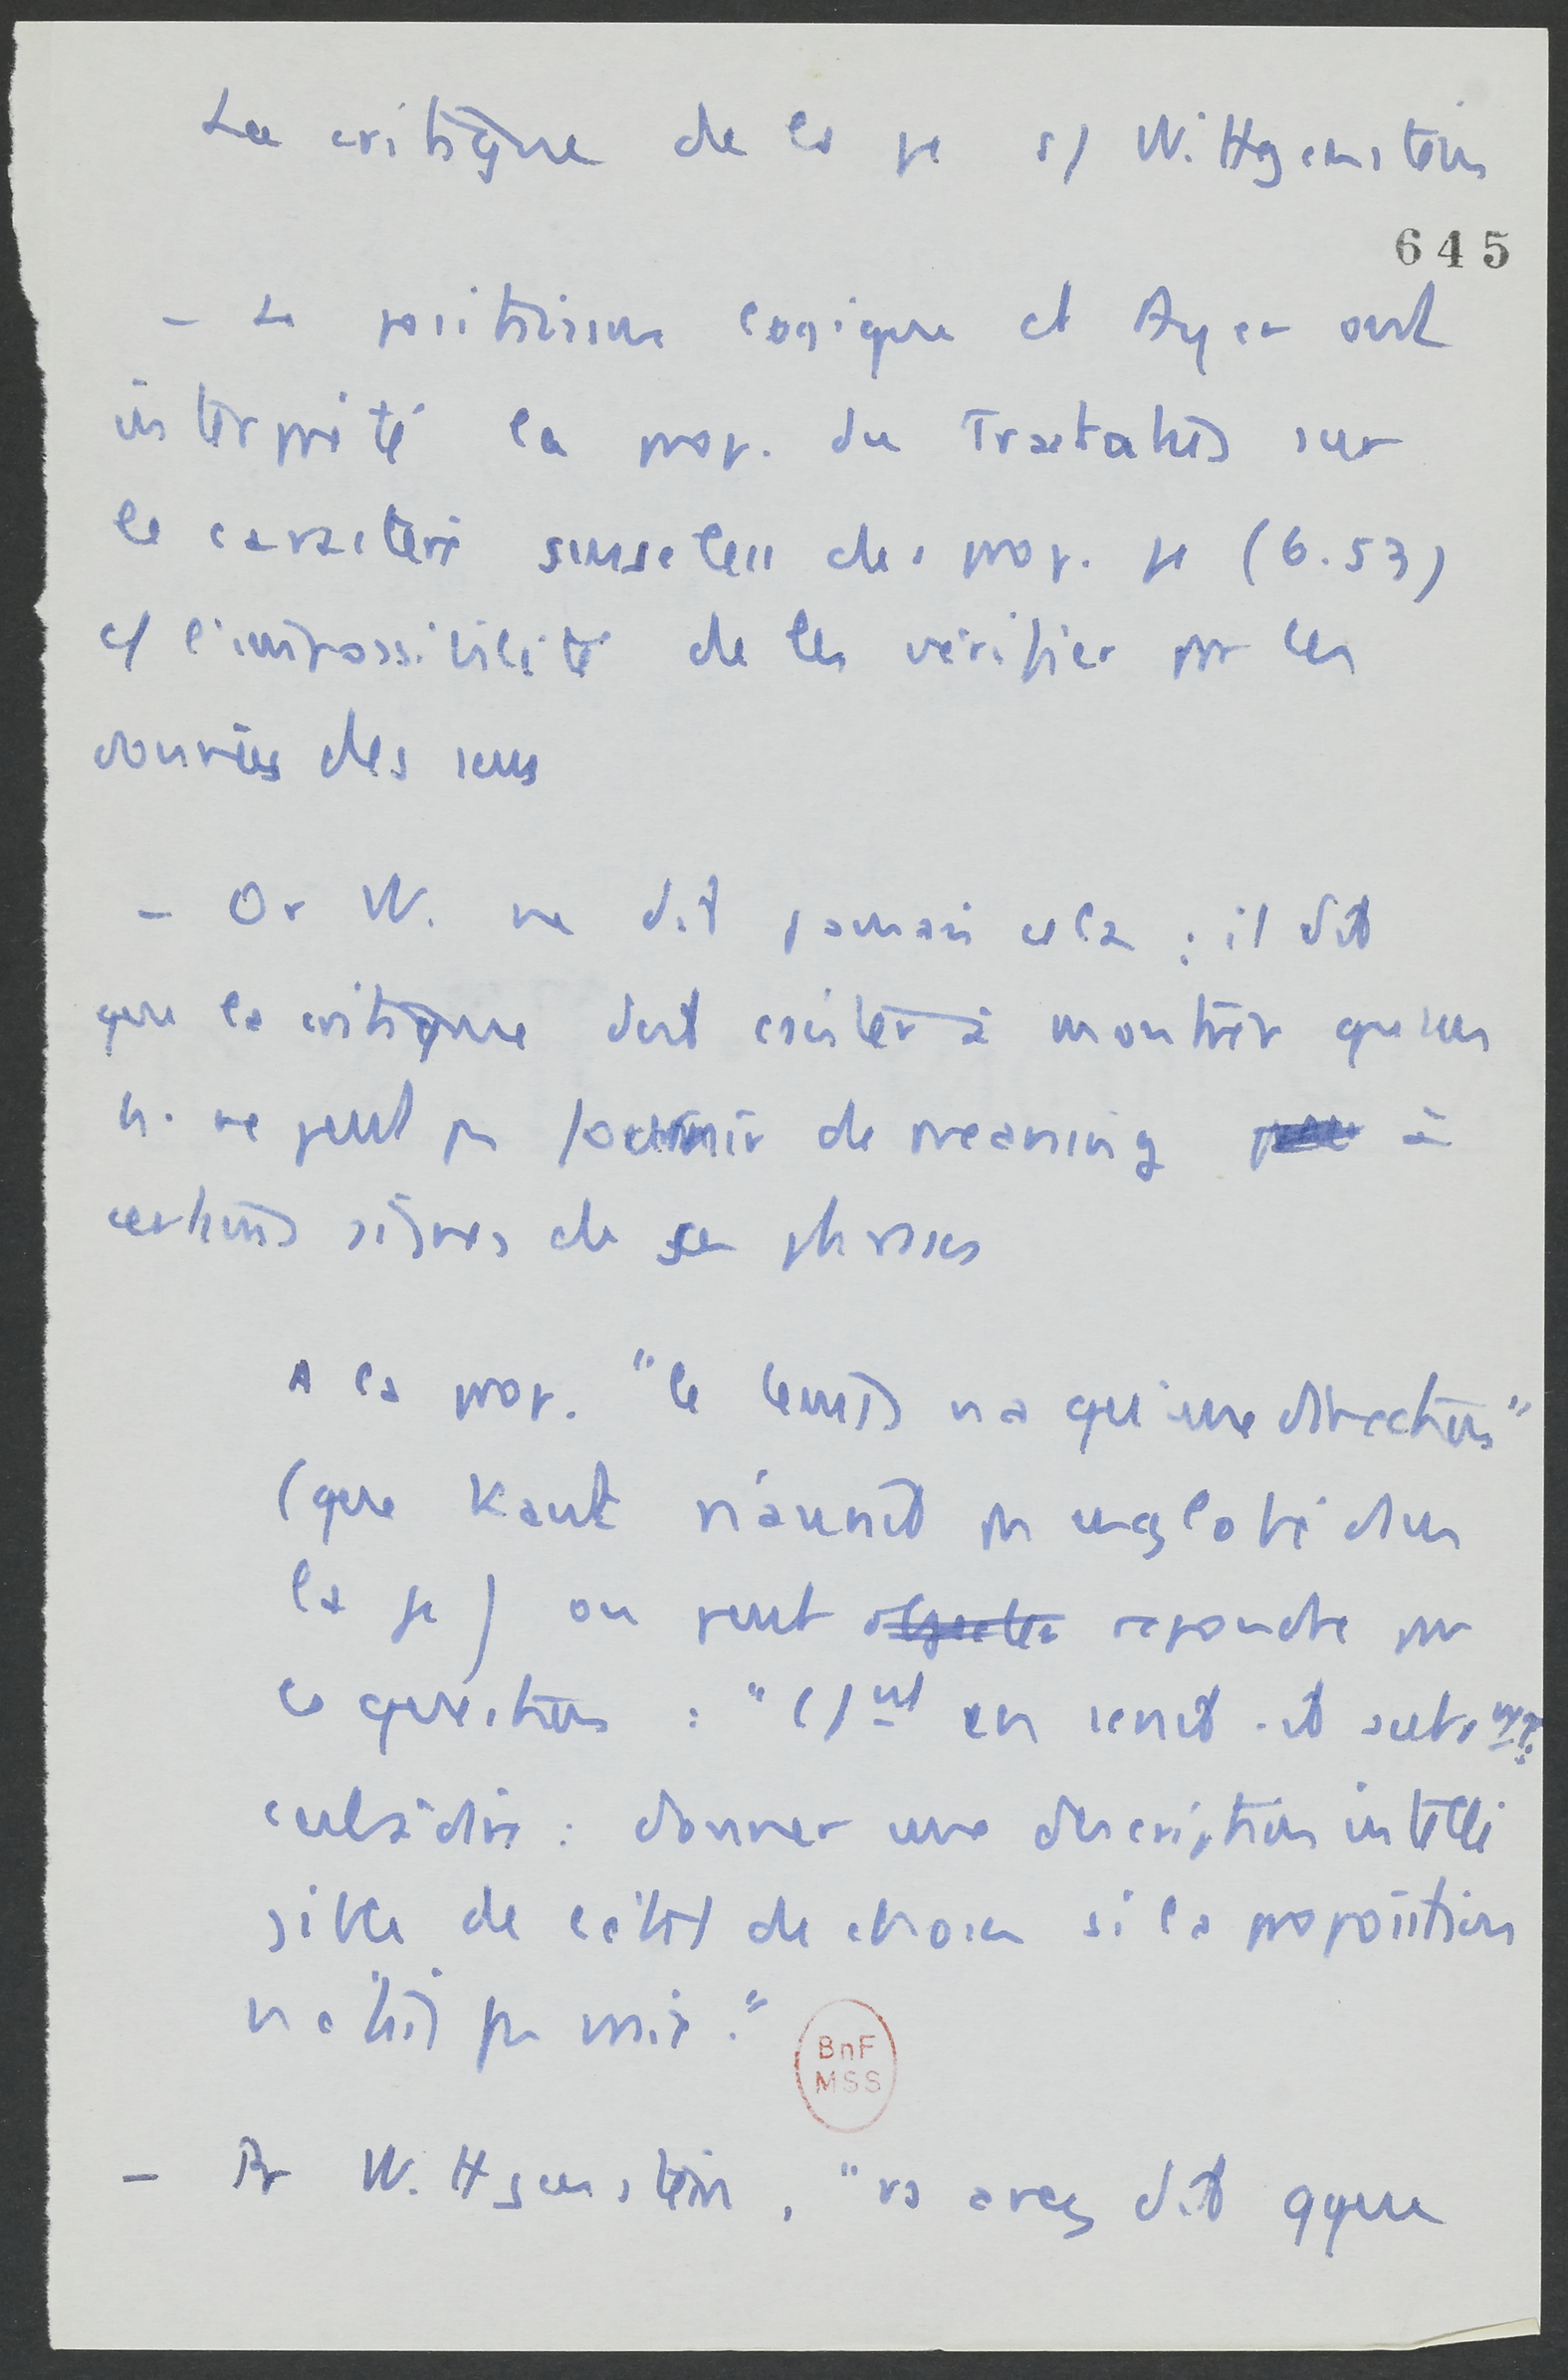 La critique de la φ c/ Wittgenstein
645
- Le positivisme logique et Ayer ont
interprété la prop. du Tractatus sur
le caractère senseless des prop. φ (6.53)
c/ l'impossibilité de les vérifier par les
données des sens
- Or W. ne dit jamais cela : il dit
que la critique doit csister à montrer que l'on
n. ne peut pas fournir de meaning à
certains signes de ses phrases
A la prop. "le temps n'a qu'une direction"
(que Kant n'aurait pas englobé dans
la φ) on peut répondre par
la question : "c/ut en serait-il autrmt?
cul à dire : donner une description intelli
gible de l'état de choses si la proposition
n'était pas vraie."
BnF
MSS
- Pr Wittgenstein, "vs avez dit qque